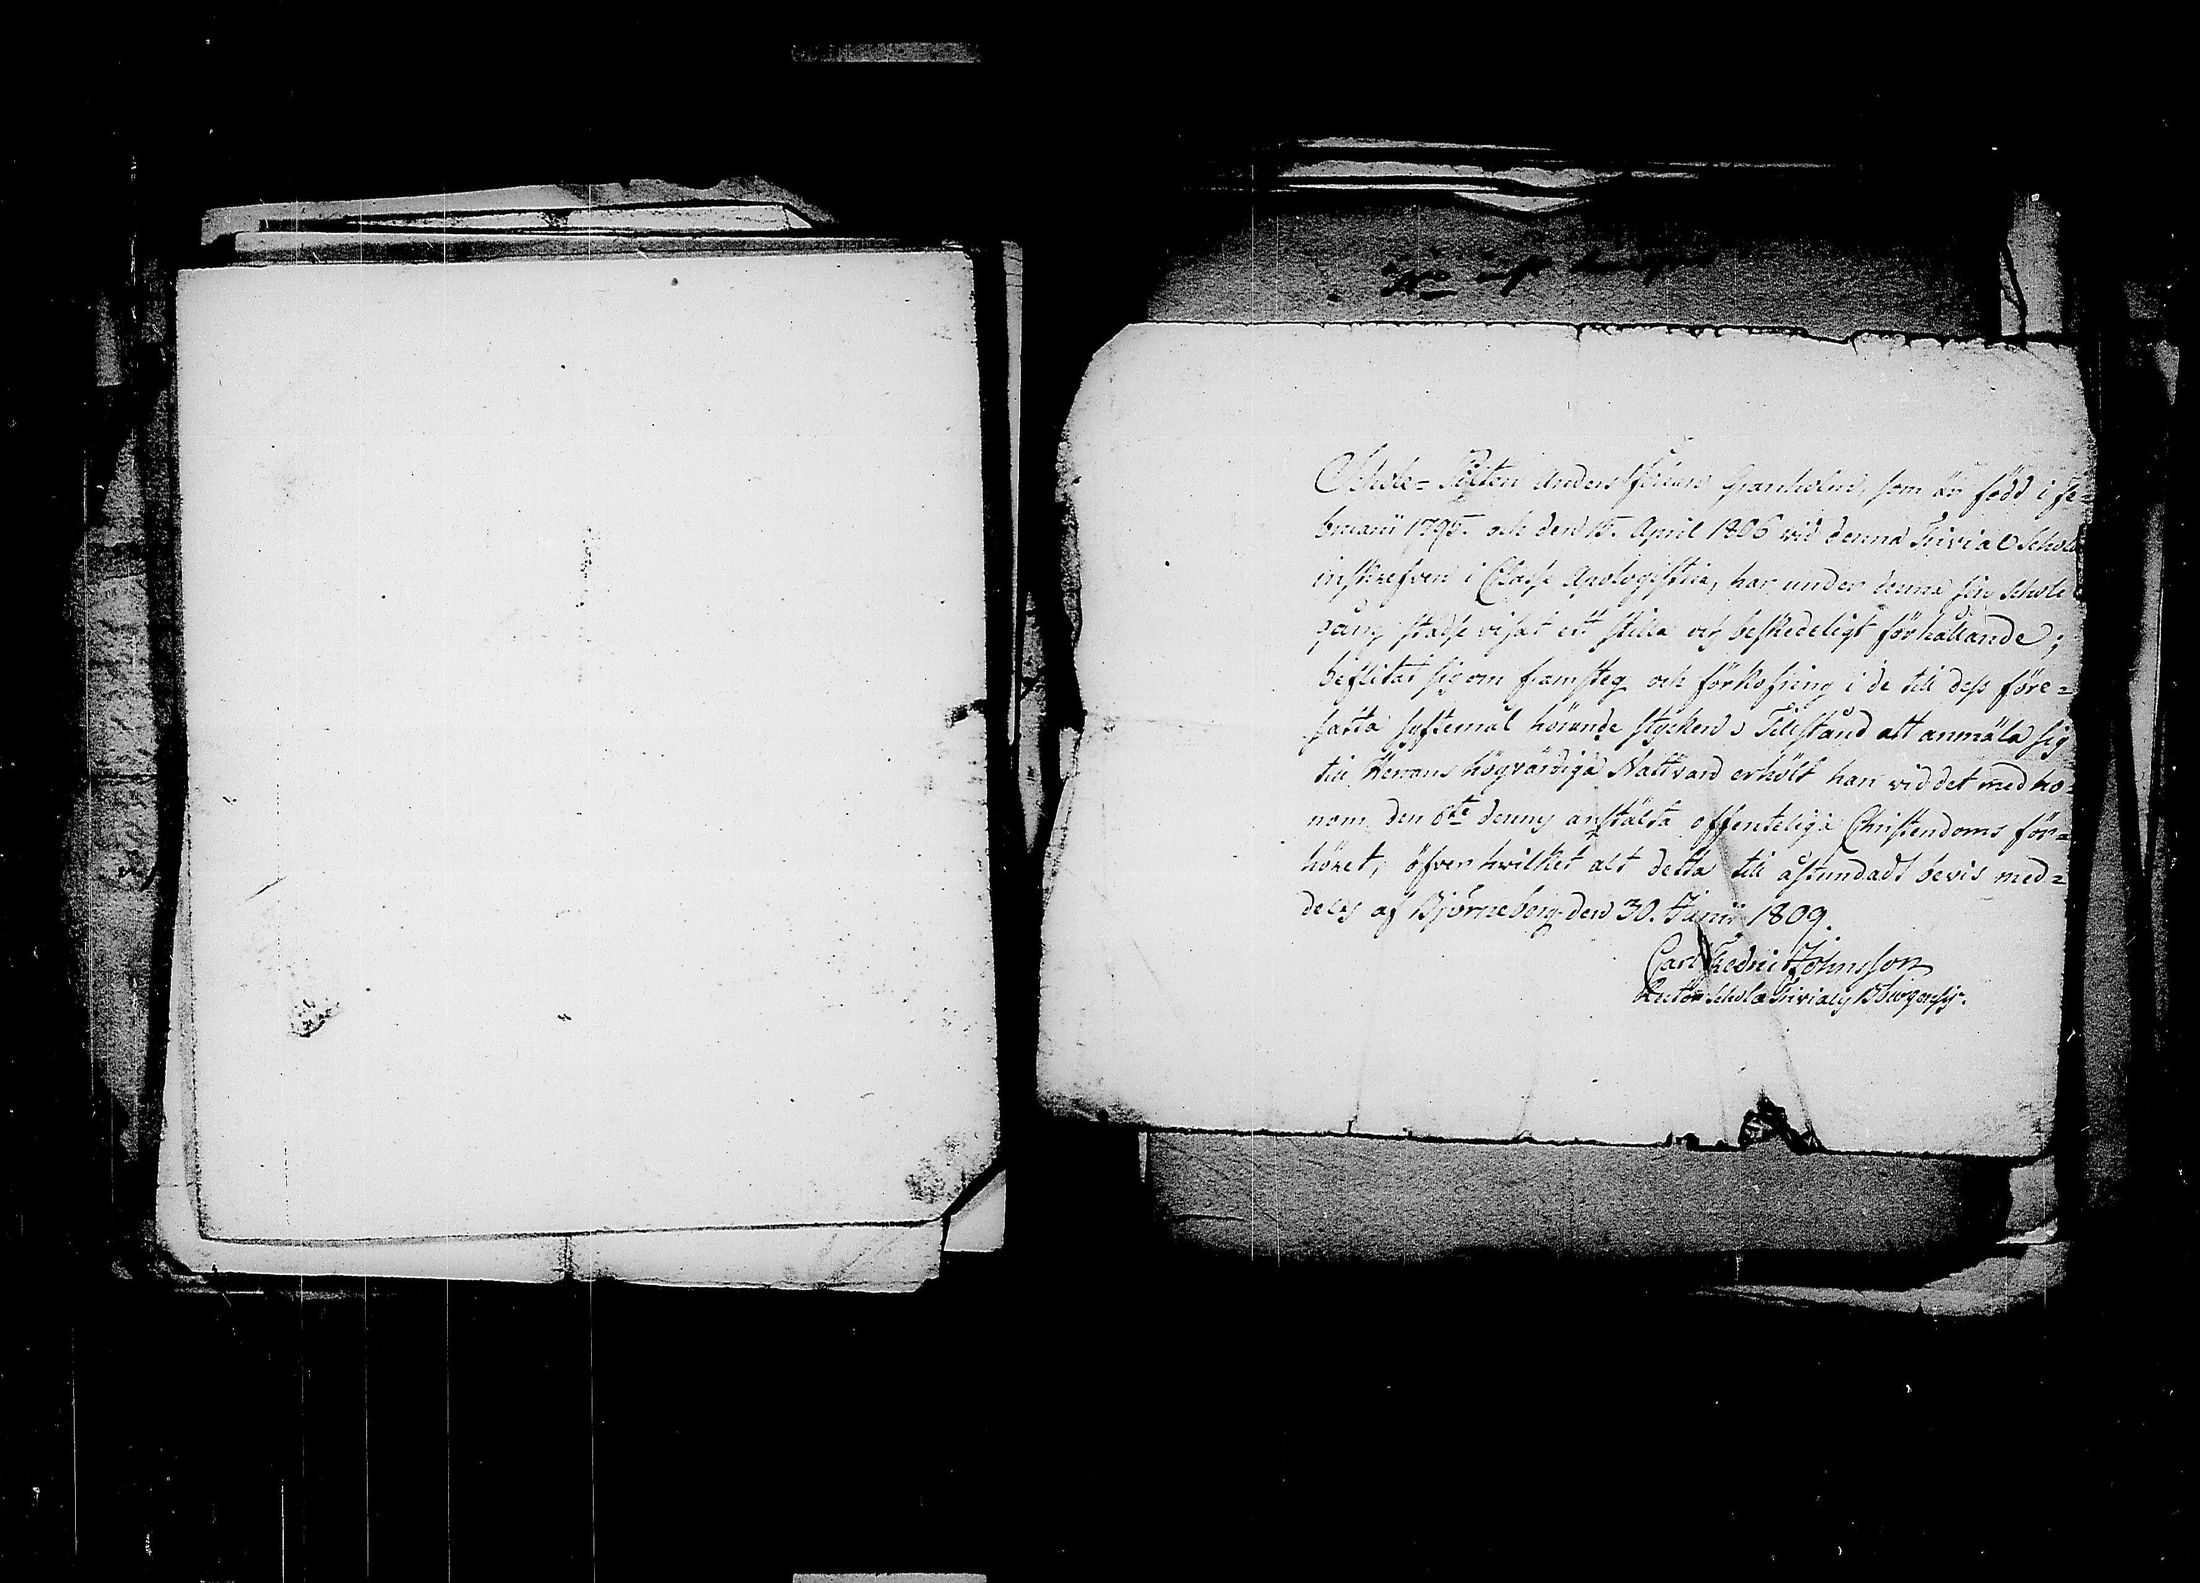 Schole-Pilten Anders Johan Granholm, som är född i Fe-
bruarii 1795. och den 15. April 1806 vid denna Trivial Schola
inskrefven i Classe Apologistica, har under denna sin Schole
gång städse visat ett stilla och beskedeligt förhållande;
beflitat sig om framsteg och förkofring i de till dess före-
satta systemål hörande stycken. Tillstånd att anmäla sig
till Herrans högvärdiga Nattvard erhölt han vid det med ho-
nom den 6te dennes anstälda offenteliga Christendoms för-
höret; öfver hvilket alt detta till åstundadt bevis med-
delas af Björneborg den 30. Junii 1809.
Carl Fredric Johnsson
Rector Scholæ Trivialis Bburgensis.